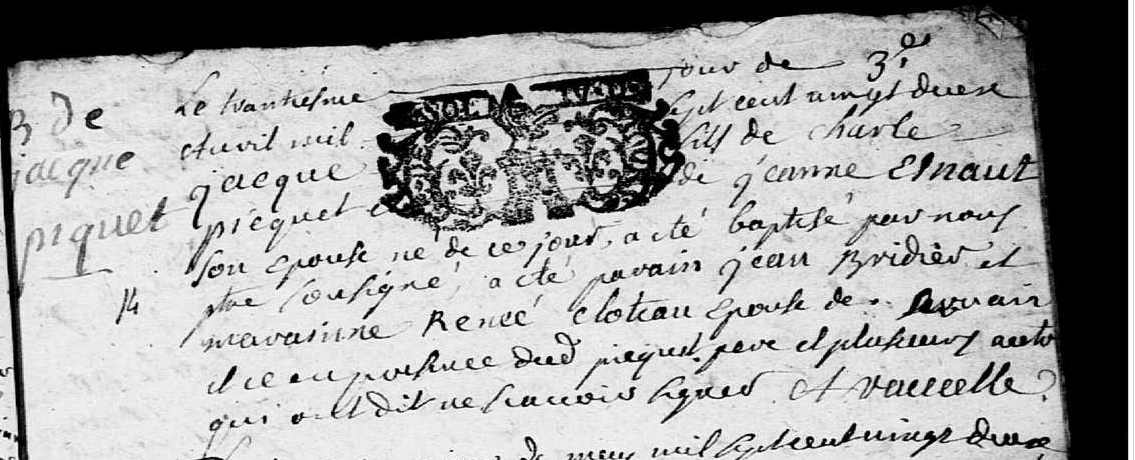 B de
jacque
piquet
14
Le trantiesme jour de
avril mil sept cent vingt deux
jacque fils de charle
piequet de jeanne Esnaut
son epouse né de ce jour, a eté baptisé par nous
ptre sousigné, a eté parain jean Bridier et
maranine Reneé cloteau epouse de
et ce en presence dud piequet pere et plusieurs autr
qui ont dit ne scavoir signer. 
de may mil sept cent vingt deux